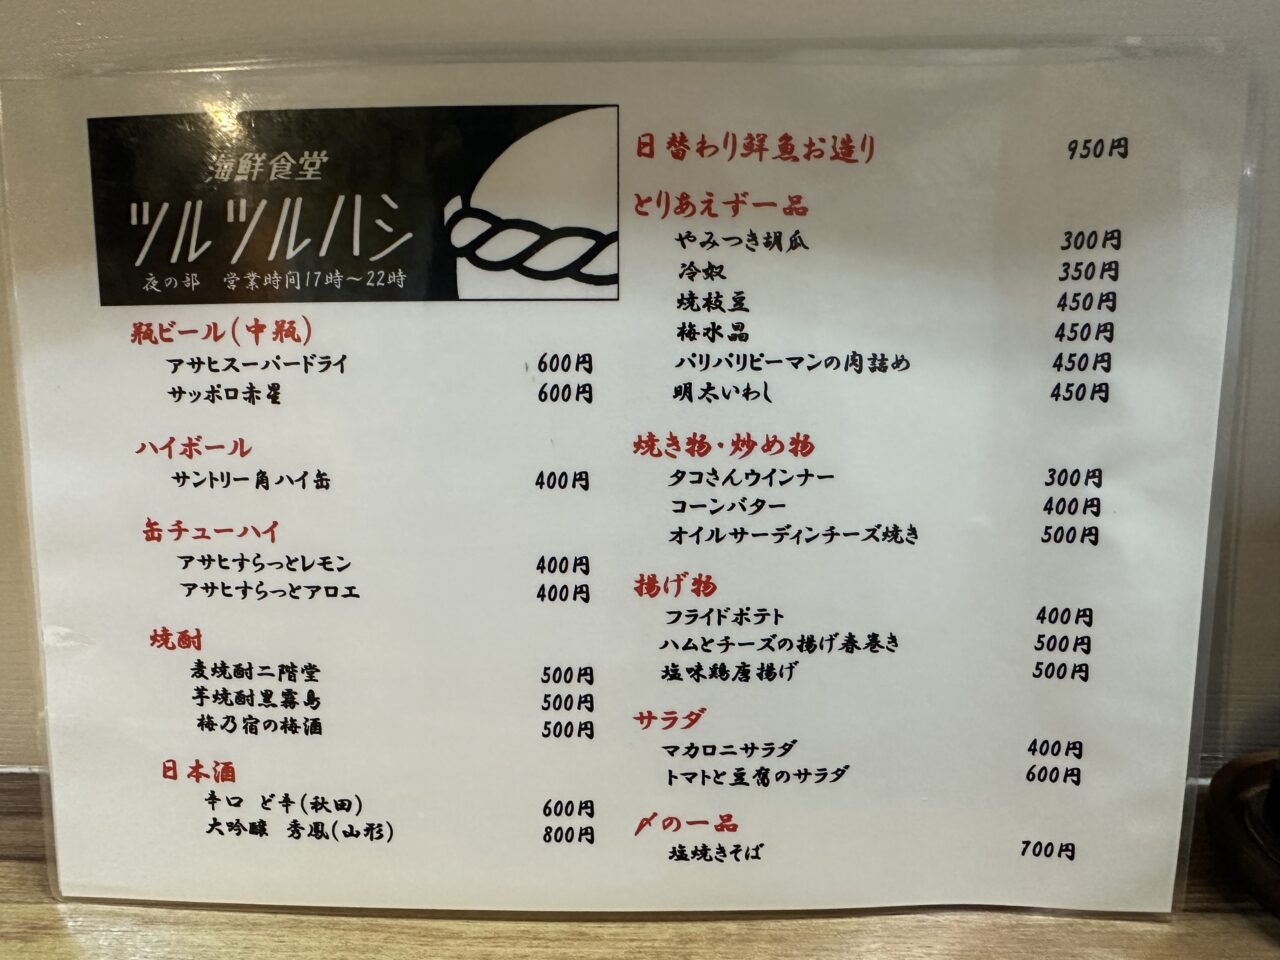 海鮮食堂
ツルツルハシ
夜の部 営業時間17時～22時
瓶ビール(中瓶)
アサヒスーパードライ 600円
サッポロ赤星 600円
ハイボール
サントリー角ハイ缶 400円
缶チューハイ
アサヒすらっとレモン 400円
アサヒすらっとアロエ 400円
焼酎
麦焼酎二階堂 500円
芋焼酎黒霧島 500円
梅乃宿の梅酒 500円
日本酒
辛口 ど辛(秋田) 600円
大吟醸 秀鳳(山形) 800円
日替わり鮮魚お造り 950円
とりあえず一品
やみつき胡瓜 300円
冷奴 350円
焼枝豆 450円
梅水晶 450円
パリパリピーマンの肉詰め 450円
明太いわし 450円
焼き物・炒め物
タコさんウインナー 300円
コーンバター 400円
オイルサーディンチーズ焼き 500円
揚げ物
フライドポテト 400円
ハムとチーズの揚げ春巻き 500円
塩味鶏唐揚げ 500円
サラダ
マカロニサラダ 400円
トマトと豆腐のサラダ 600円
〆の一品
塩焼きそば 700円